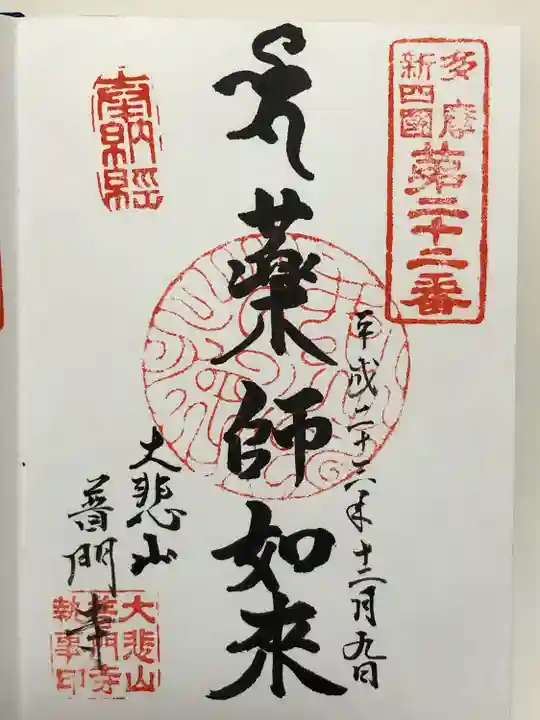 多摩
新四国
第二十二番
平成二十六年十二月九日
薬師如来
奉納経
大悲山
普門寺
大悲山
普門寺
執事印